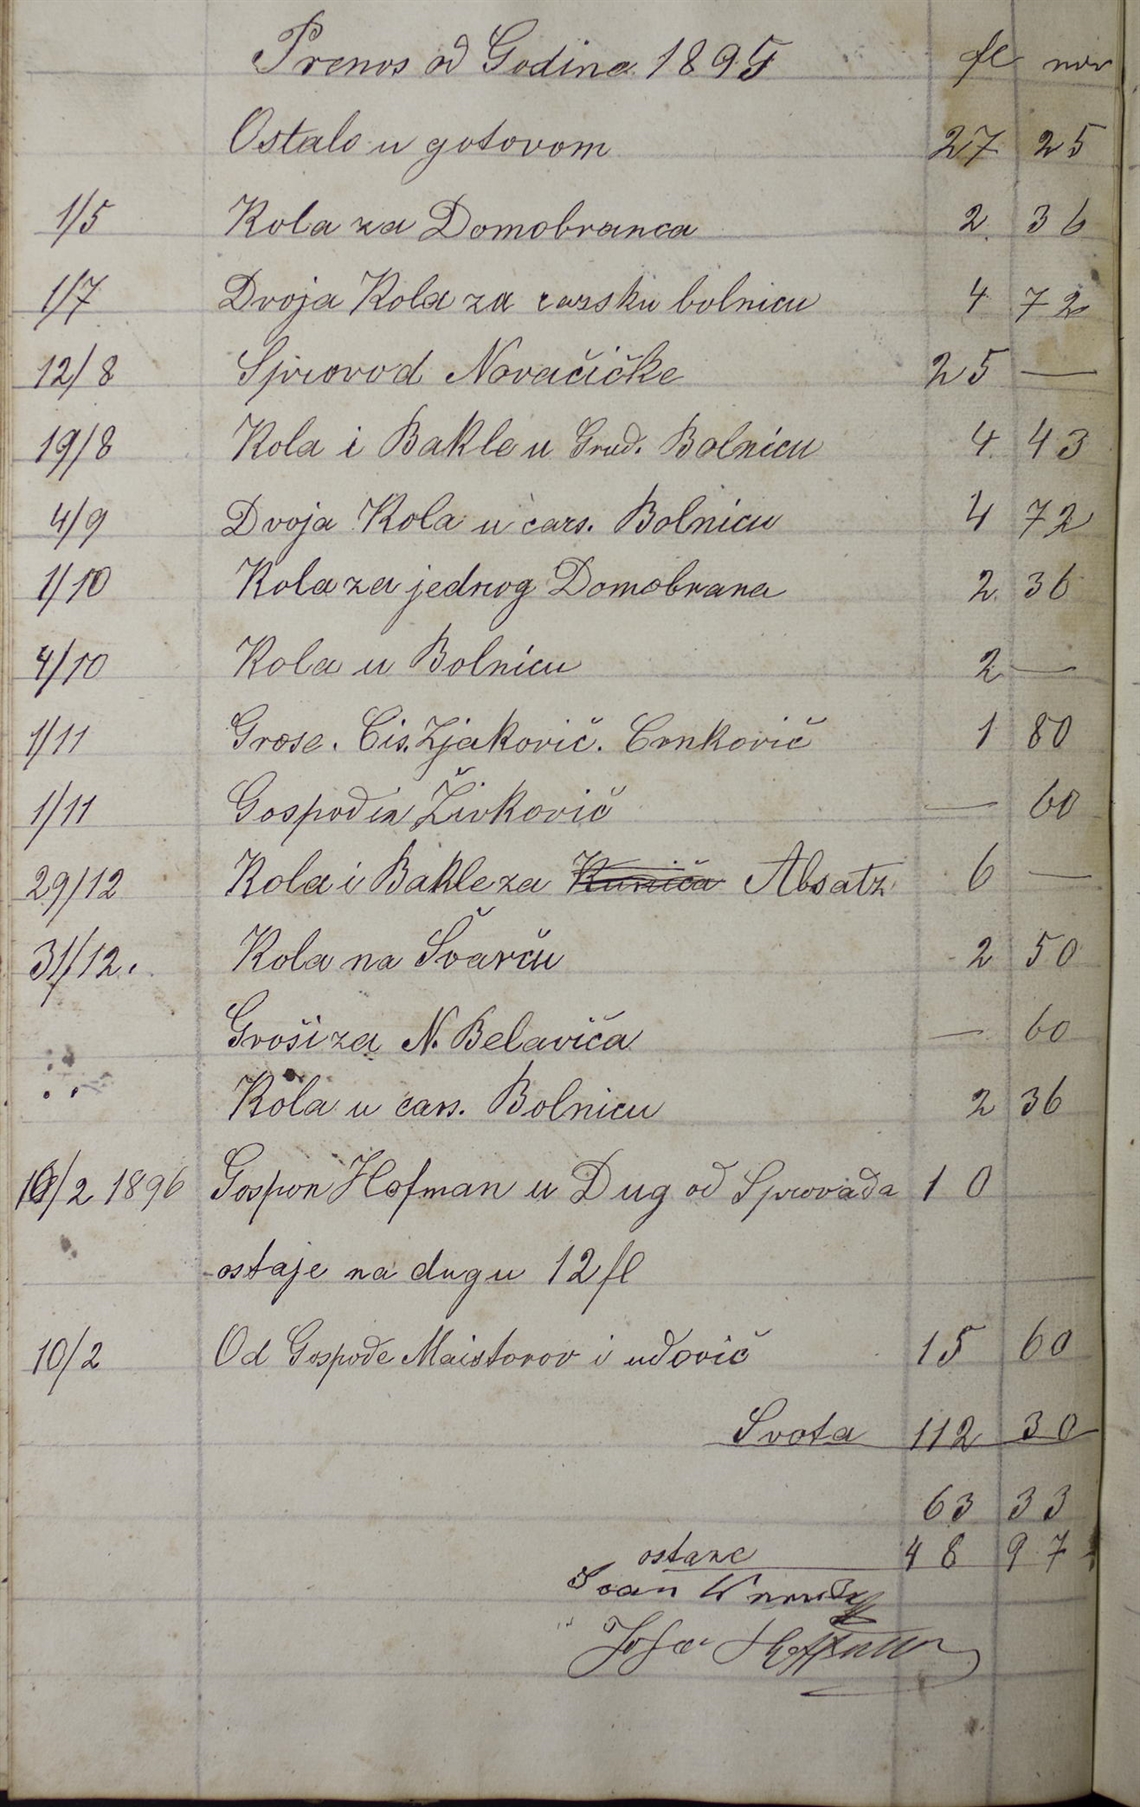 Prenos od Godine 1895 fl nov
Ostalo u gotovom 27 25
1/5 Kola za Domobranca 2 36
1/7 Dvoja Kola za carsku bolnicu 4 72
12/8 Sprovod Novačičke 25 —
19/8 Kola i Bakle u Grad. Bolnicu 4 43
4/9 Dvoja Kola u cars. Bolnicu 4 72
1/10 Kola za jednog Domobrana 2 36
4/10 Kola u Bolnicu 2 —
1/11 Grose. Cis. Zjakovič. Crnkovič 1 80
1/11 Gospodin Živkovič — 60
29/12 Kola i Bakle za Kuniča Absatz 6 —
31/12. Kola na Švarču 2 50
Groši za N. Belaviča — 60
Kola u cars. Bolnicu 2 36
10/2 1896 Gospon Hofman u Dug od Sprovada 10
ostaje na dugu 12 fl
10/2 Od Gospođe Maistorov i udovič 15 60
Svota 112 30
63 33
ostane 48 97
Ivan
Josef Hoffman